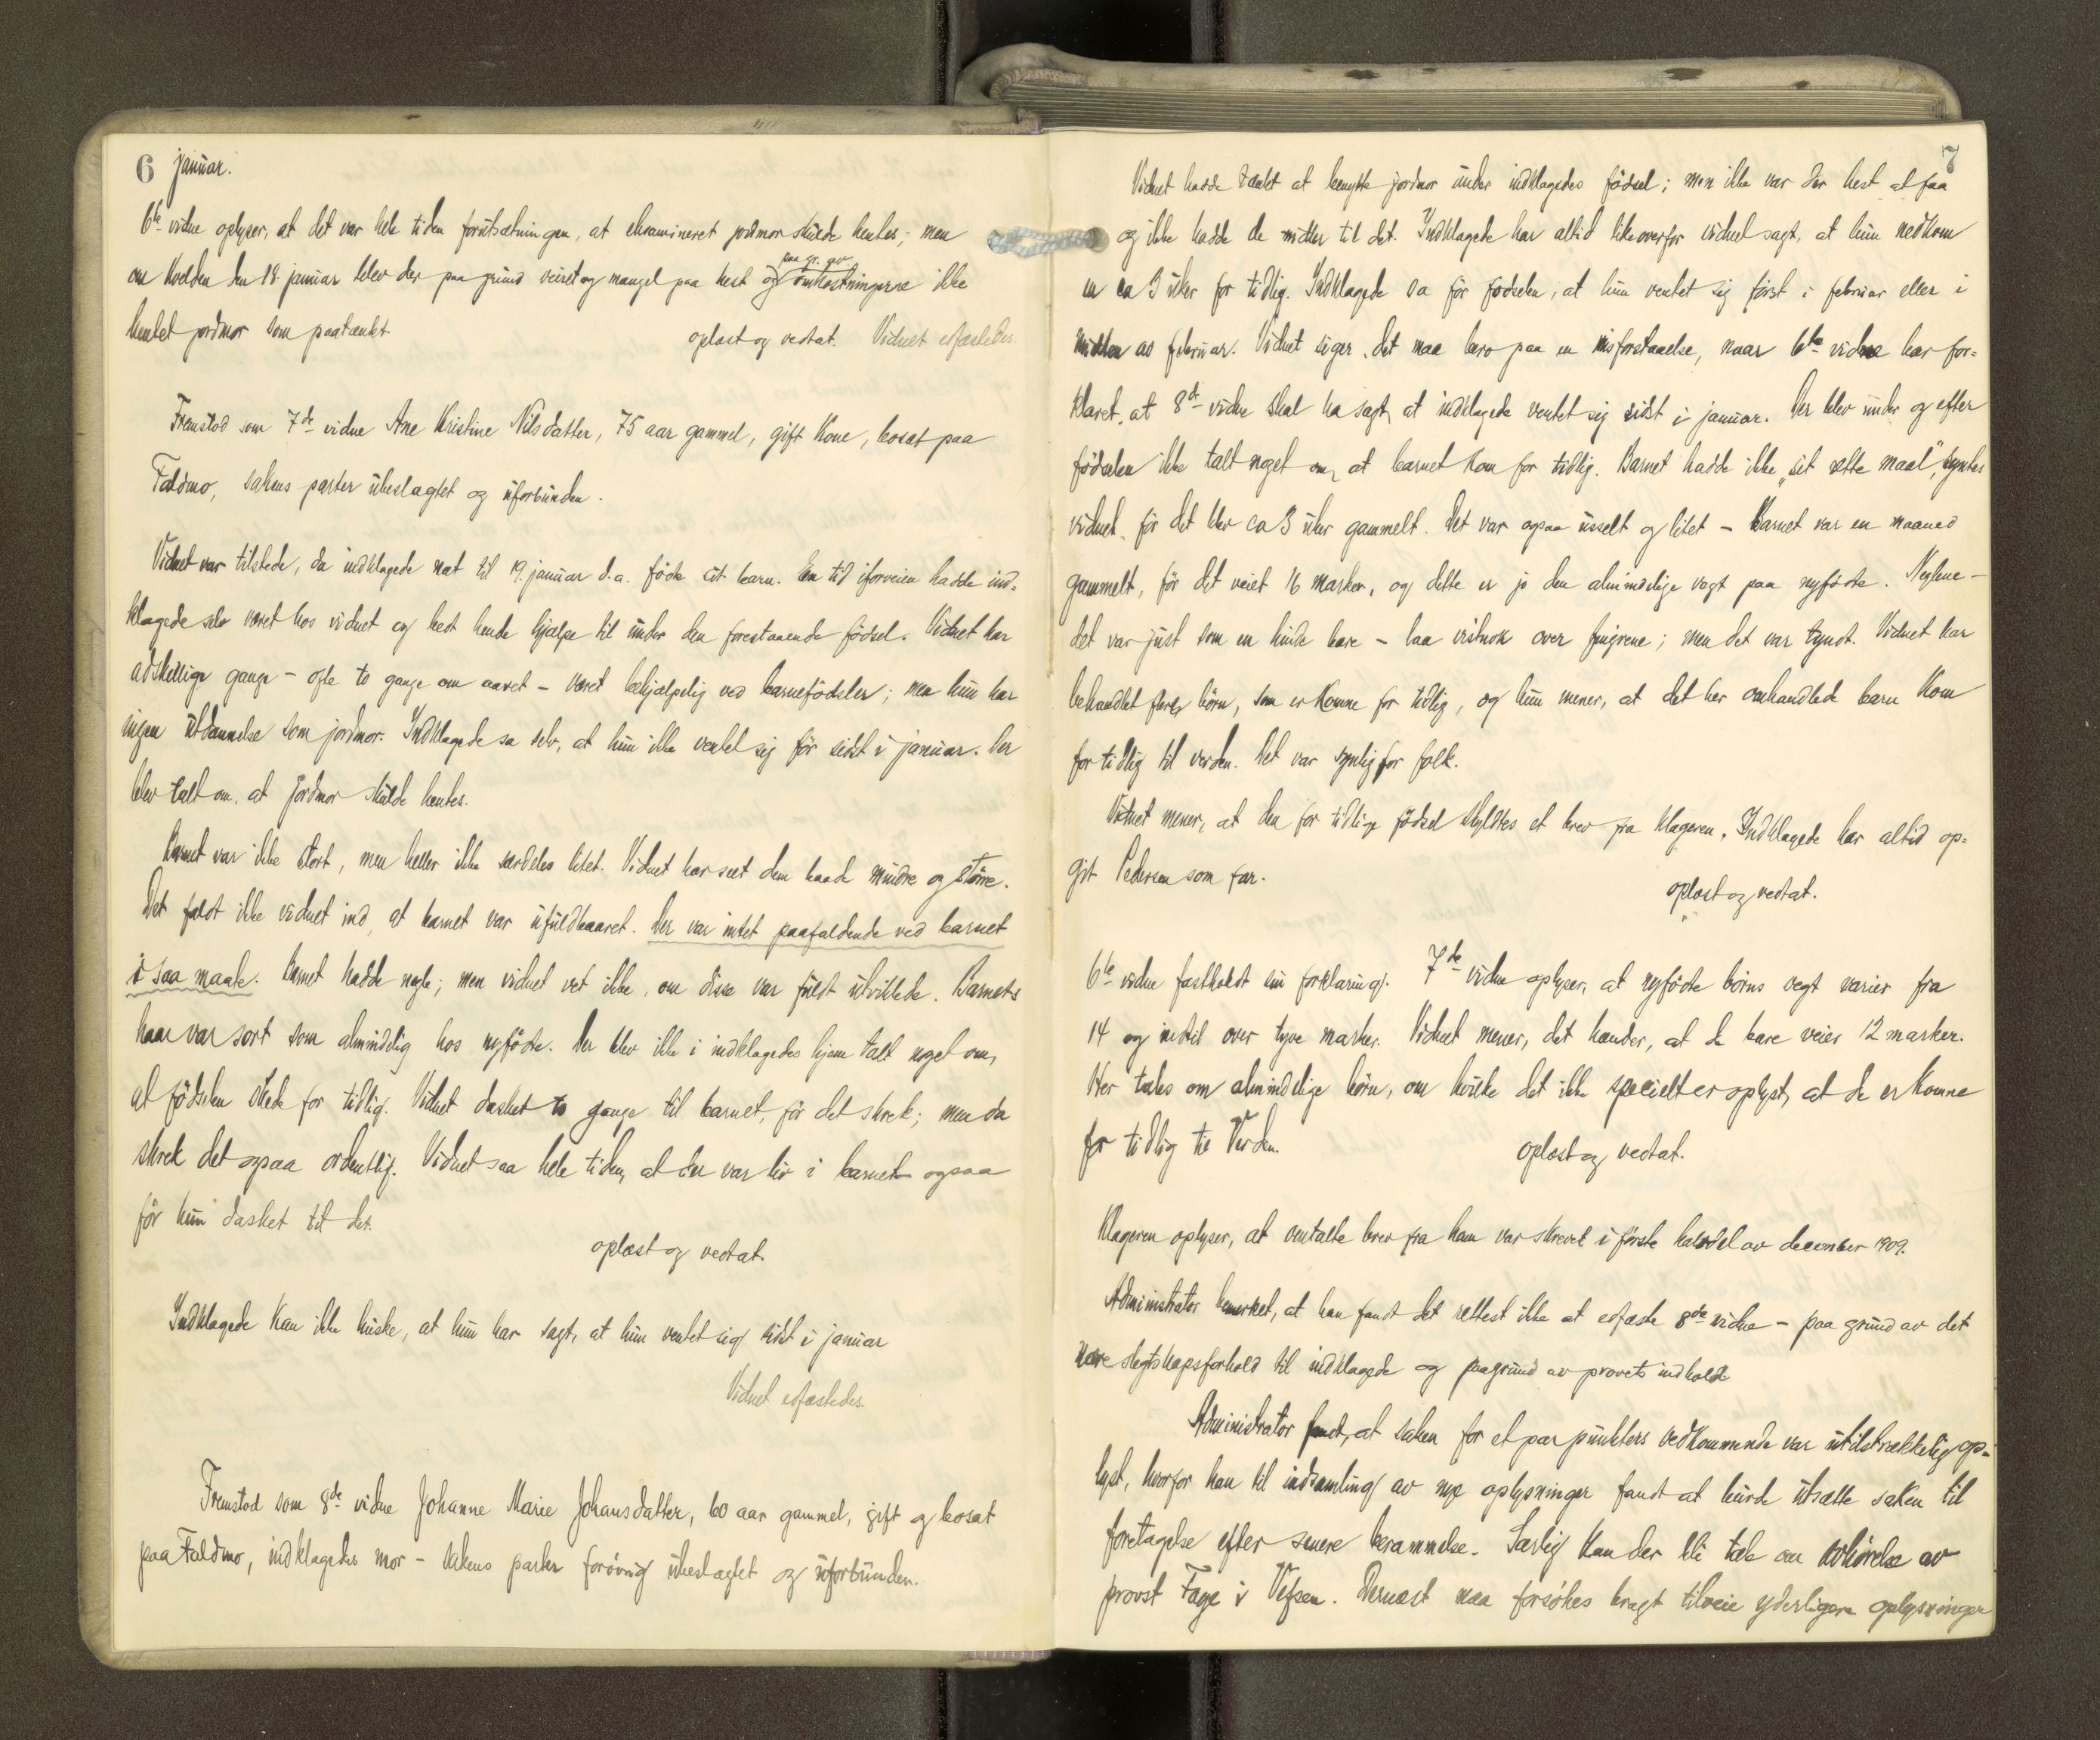 6 januar.
6te vidne oplyser, at det var hele tiden forutsætningen, at eksamineret jordmor skulde hentes; men
om kvelden den 18 januar blev der paa grund veiret og mangel paa hest og paa gr. av omkostningerne ikke
hentet jordmor som paatænkt.
oplæst og vedtat. Vidnet edfæstedes.
Fremstod som 7de vidne Ane Kristine Nilsdatter, 75 aar gammel, gift kone, bosat paa
Faldmo, sakens parter ubeslagtet og uforbunden.
Vidnet var tilstede, da indklagede nat til 19. januar d.a. fødte sit barn. En tid iforveien hadde ind-
klagede selv været hos vidnet og bedt hende hjælpe til under den forestaaende fødsel. Vidnet har
adskellige gange - ofte to gange om aaret - været behjælpelig ved barnefødsler; men hun har
ingen utdannelse som jordmor. Indklagede sa selv, at hun ikke ventet sig før sidst i januar. Der
blev talt om, at jordmor skulde hentes.
Barnet var ikke stort, men heller ikke særdeles litet. Vidnet har seet dem baade mindre og større.
Det faldt ikke vidnet ind, at barnet var ufuldbaaret. Der var intet paafaldende ved barnet
i saa maate. Barnet hadde negle; men vidnet vet ikke, om disse var fuldt utviklede. Barnets
haar var sort som almindelig hos nyfødte. Der blev ikke i indklagedes hjem talt noget om,
at fødselen skede for tidlig. Vidnet dasket to gange til barnet, før det skrek; men da
skrek det ogsaa ordentlig. Vidnet saa hele tiden, at der var liv i barnet ogsaa
før hun dasket til det.
oplæst og vedtat.
Indklagede kan ikke huske, at hun har sagt, at hun ventet sig sidst i januar
Vidnet edfæstedes.
Fremstod som 8de vidne Johanne Marie Johansdatter, 60 aar gammel, gift og bosat
paa Faldmo, indklagedes mor - sakens parter forøvrig ubeslagtet og uforbunden.
7
Vidnet hadde tænkt at benytte jordmor under indklagedes fødsel; men ikke var der hest at faa
og ikke hadde de midler til det. Indklagede har altid likeoverfor vidnet sagt, at hun nedkom
en ca 3 uker for tidlig. Indklagede sa før fødselen, at hun ventet sig først i februar eller i
midten av februar. Vidnet siger, det maa bero paa en misforstaaelse, naar 6te vidne har for-
klaret, at 8de vidne skal ha sagt, at indklagede ventet sig sidst i januar. Der blev under og efter
fødselen ikke talt noget om, at barnet kom for tidlig. Barnet hadde ikke „sit rette maal", syntes
vidnet, før det blev ca 3 uker gammelt. Det var ogsaa usselt og litet - Barnet var en maaned
gammelt, før det veiet 16 marker, og dette er jo den almindelige vegt paa nyfødte. Neglene -
det var just som en hinde bare - laa vistnok over fingrene; men det var tyndt. Vidnet har
behandlet flere børn, som er komne for tidlig, og hun mener, at det her omhandlede barn kom
for tidlig til verden. Det var synlig for folk.
Vidnet mener, at den for tidlige fødsel skyldtes et brev fra klageren. Indklagede har altid op-
git Pedersen som far.
oplæst og vedtat.
6te vidne fastholdt sin forklaring. 7de vidne oplyser, at nyfødte børns vegt varier fra
14 og indtil over tyve marker. Vidnet mener, det hænder, at de bare veier 12 marker.
Her tales om almindelige børn, om hvilke det ikke specielt er oplyst, at de er komne
for tidlig til Verden.
oplæst og vedtat.
Klageren oplyser, at omtalte brev fra ham var skrevet i første halvdel av december 1909.
Administrator bemerket, at han fandt det rettest ikke at edfæste 8de vidne - paa grund av det
nære slegtskapsforhold til indklagede og paagrund av provets indhold
Administrator fandt, at saken for et par punkters vedkommende var utilstrækkelig op-
lyst, hvorfor han til indsamling av nye oplysninger fandt at burde utsætte saken til
foretagelse efter senere berammelse. Særlig kan der bli tale om avhørelse av
provst Fage i Vefsen. Dernæst maa forsøkes bragt tilveie yderligere oplysninger